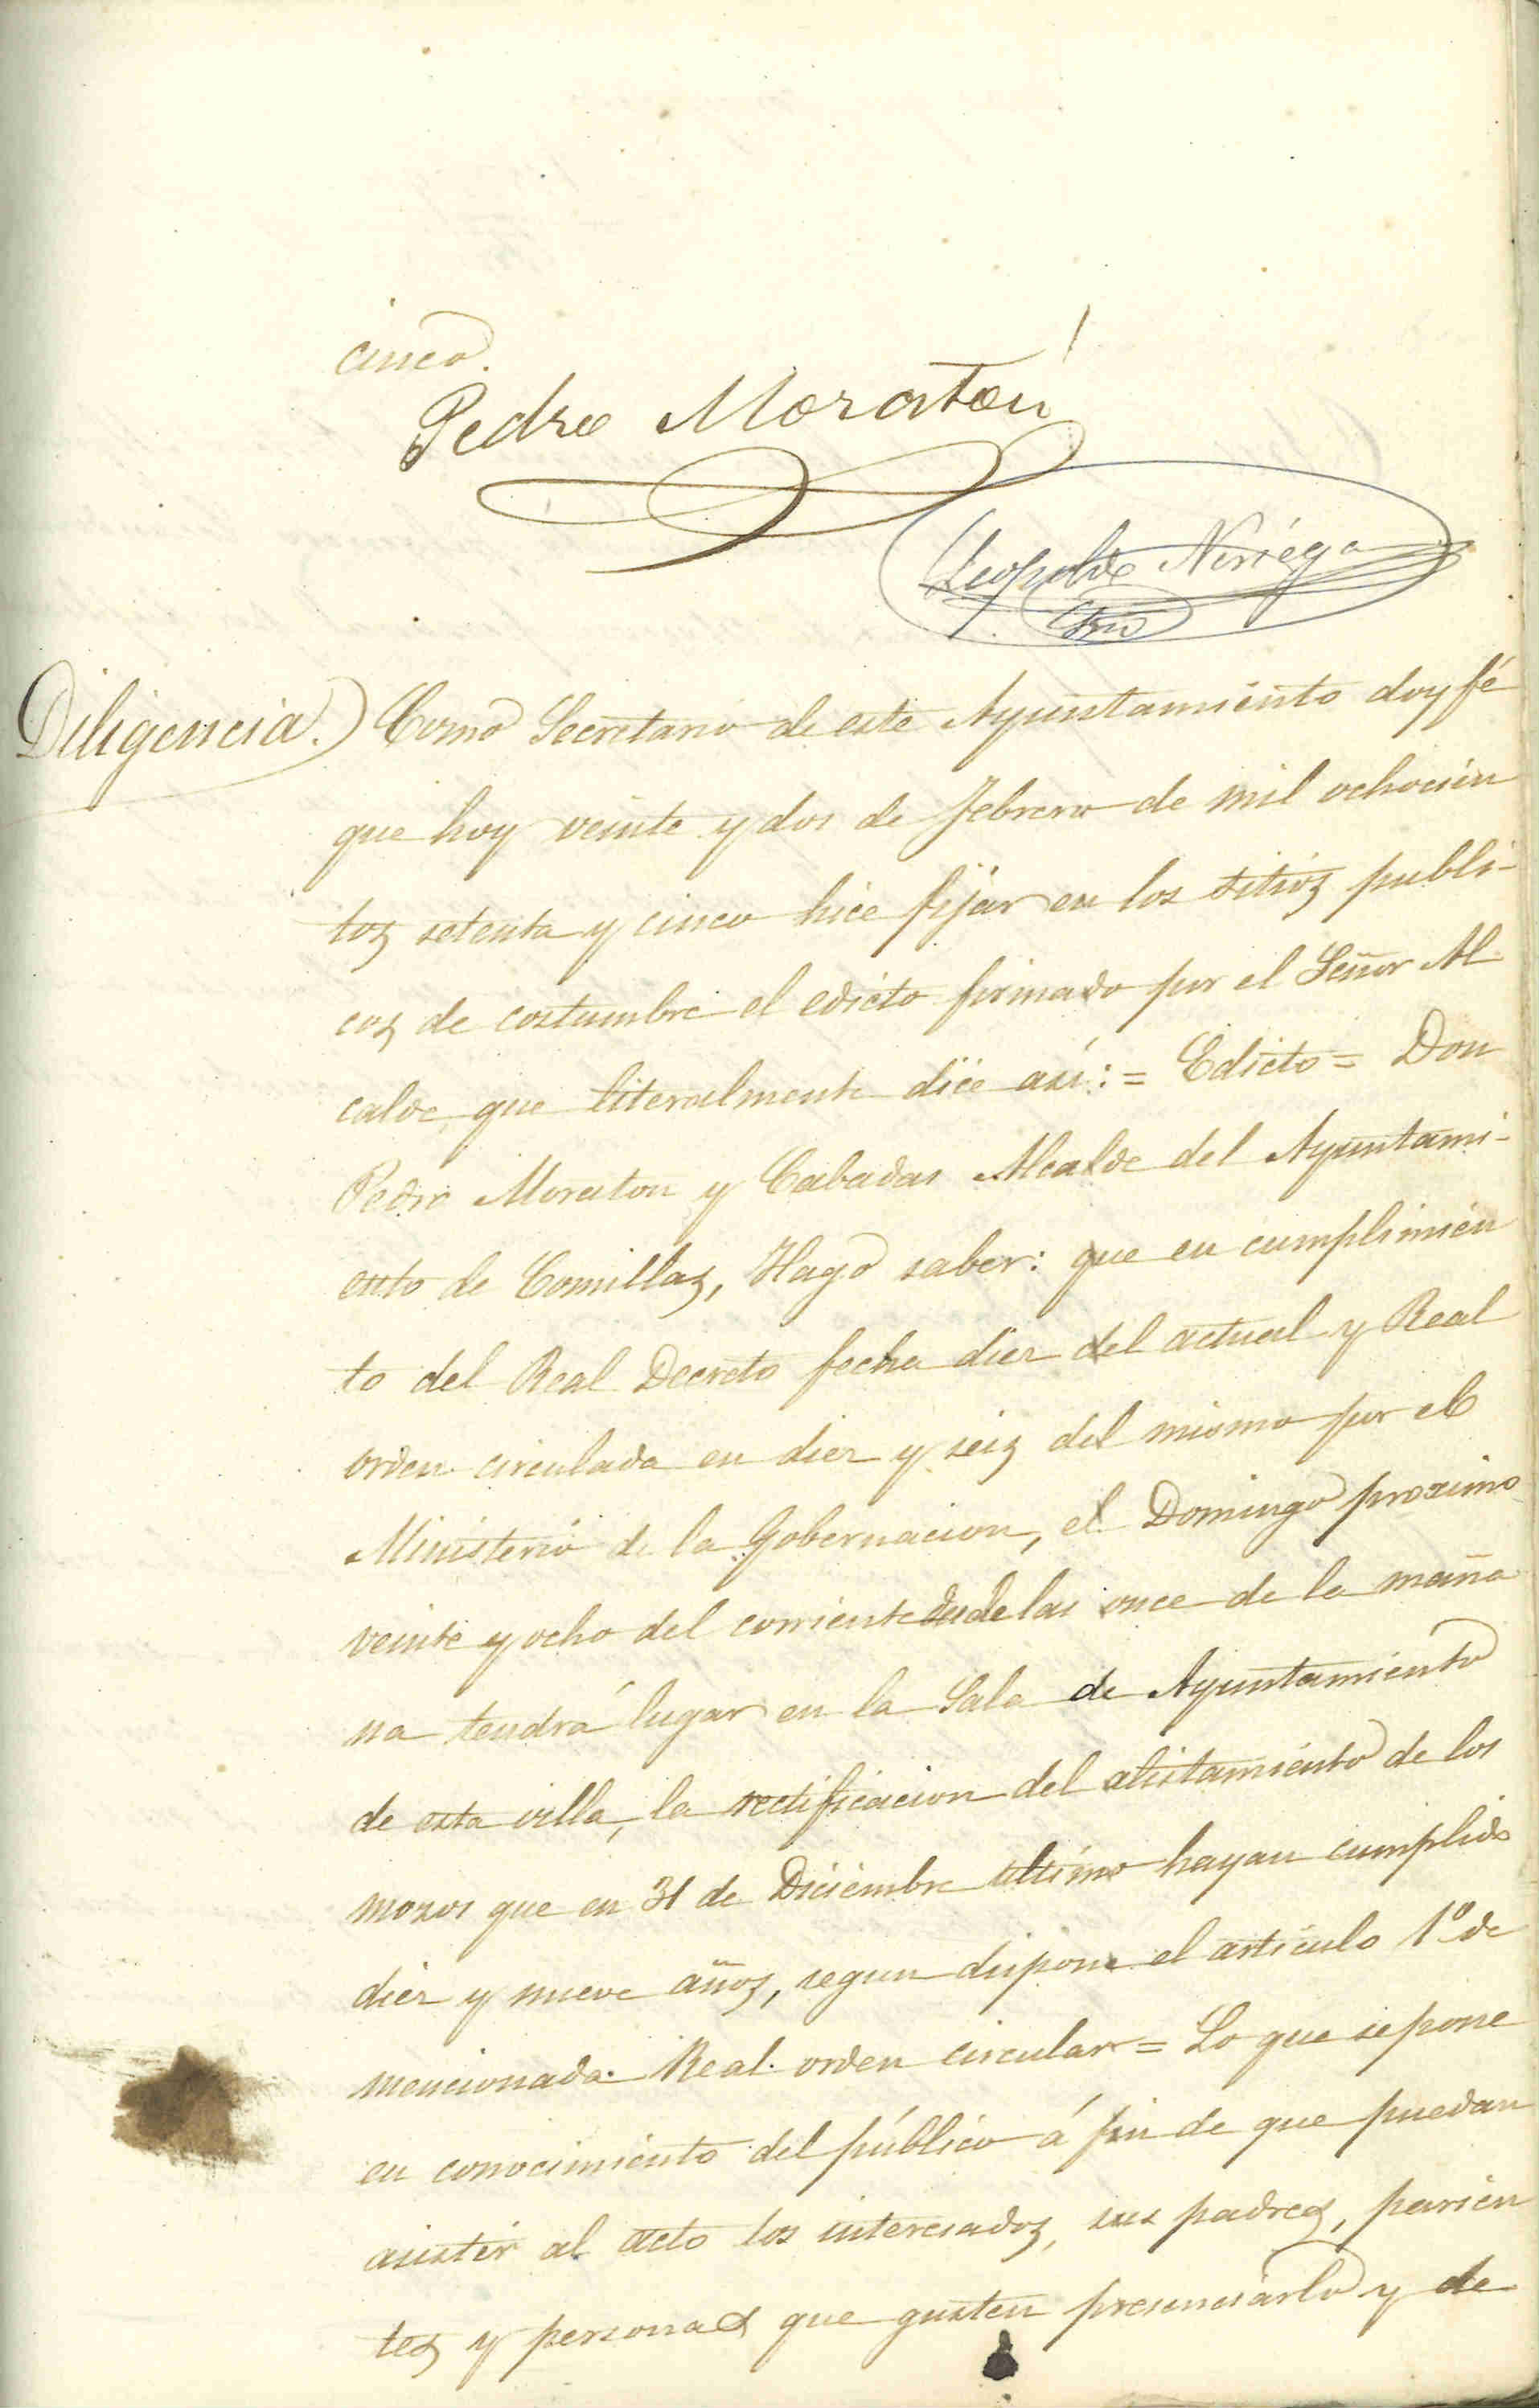 cinco.
Pedro Moratón
Leopoldo Noriega
Srio
Diligencia.) Como Secretario de este Ayuntamiento doy fé
que hoy veinte y dos de Febrero de mil ochocien
tos setenta y cinco hice fijar en los sitios publi-
cos de costumbre el edicto firmado por el Señor Al
calde, que literalmente dice así: = Edicto = Don
Pedro Moraton y Cabadas Alcalde del Ayuntami-
ento de Comillas, Hago saber: que en cumplimien
to del Real Decreto fecha diez del actual y Real
orden circulada en diez y seis del mismo por el
Ministerio de la Gobernacion, el Domingo proximo
veinte y ocho del corriente desde las once de la maña
na tendrá lugar en la Sala de Ayuntamiento
de esta villa, la rectificacion del alistamiento de los
mozos que en 31 de Diciembre ultimo hayan cumplido
diez y nueve años, segun dispone el artículo 1º de
mencionada Real orden circular = Lo que se pone
en conocimiento del público á fin de que puedan
asistir al acto los interesados, sus padres, parien
tes y personas que gusten presenciarlo y de